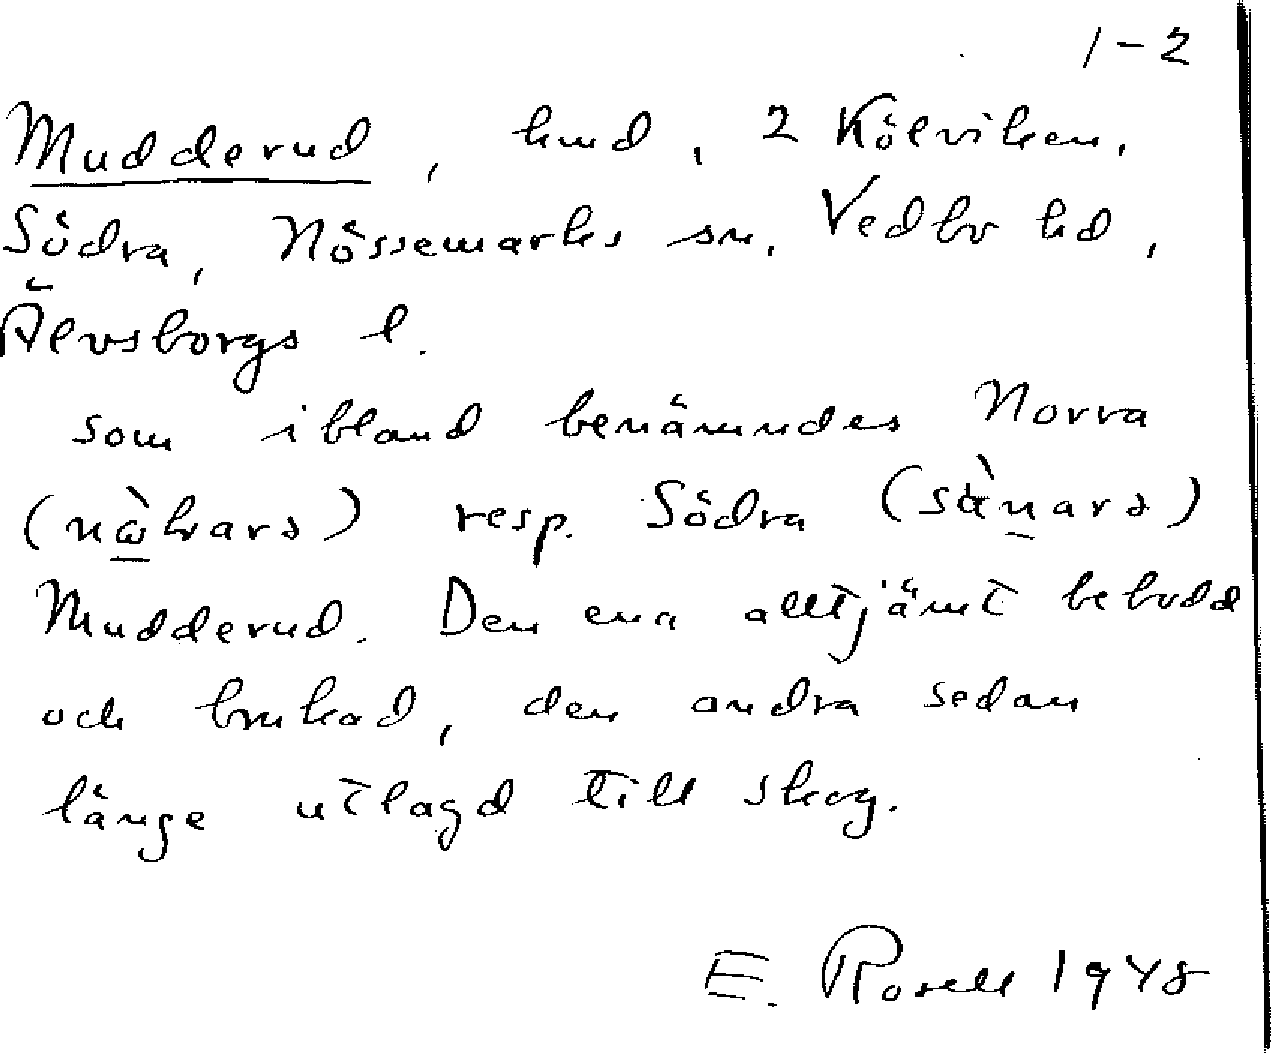 1-2
Mudderud, hmd, 2 Kölviken,
Södra, Nössemarks sn. Vedbo hd,
Älvsborgs l.
som ibland benämndes Norra
(nὼkars) resp. Södra (sὰnars)
Mudderud. Den ena alltjämt bebodd
och brukad, den andra sedan
länge utlagd till skog.
E. Rosell 1948